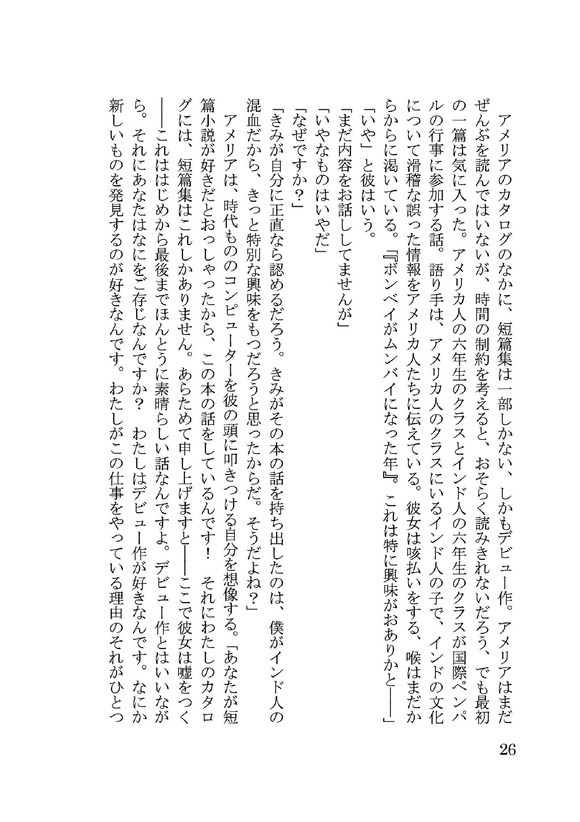 アメリアのカタログのなかに、短篇集は一部しかない、しかもデビュー作。アメリアはまだ
ぜんぶを読んではいないが、時間の制約を考えると、おそらく読みきれないだろう、でも最初
の一篇は気に入った。アメリカ人の六年生のクラスとインド人の六年生のクラスが国際ペンパ
ルの行事に参加する話。語り手は、アメリカ人のクラスにいるインド人の子で、インドの文化
について滑稽な誤った情報をアメリカ人たちに伝えている。彼女は咳払いをする、喉はまだか
らからに渇いている。『ボンベイがムンバイになった年』。これは特に興味がおありかと――」
「いや」と彼はいう。
「まだ内容をお話ししてませんが」
「いやなものはいやだ」
「なぜですか？」
「きみが自分に正直なら認めるだろう。きみがその本の話を持ち出したのは、僕がインド人の
混血だから、きっと特別な興味をもつだろうと思ったからだ。そうだよね？」
　アメリアは、時代もののコンピューターを彼の頭に叩きつける自分を想像する。「あなたが短
篇小説が好きだとおっしゃったから、この本の話をしているんです！　それにわたしのカタロ
グには、短篇集はこれしかありません。あらためて申し上げますと――ここで彼女は嘘をつく
――これははじめから最後までほんとうに素晴らしい話なんですよ。デビュー作とはいいなが
ら。それにあなたはなにをご存じなんですか？　わたしはデビュー作が好きなんです。なにか
新しいものを発見するのが好きなんです。わたしがこの仕事をやっている理由のそれがひとつ
26